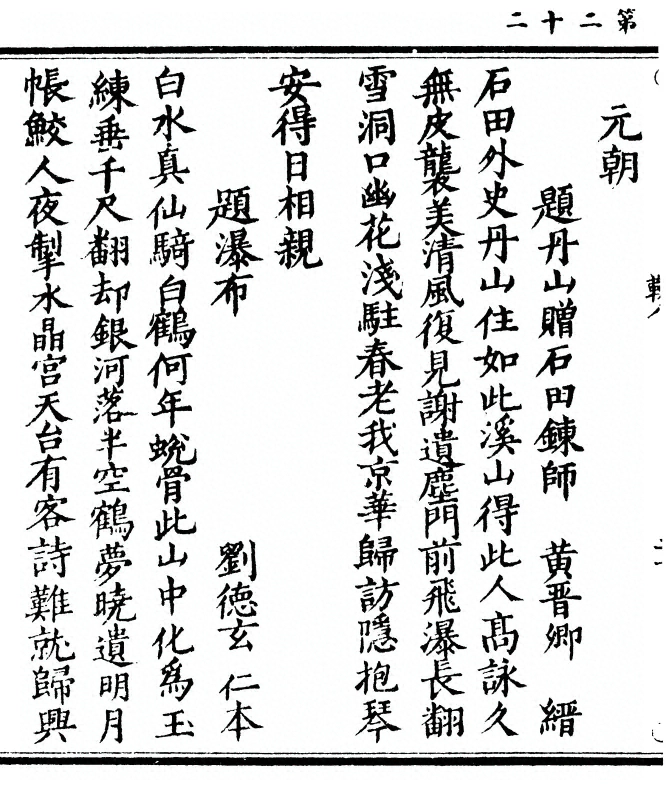 第二十二
元朝
題丹山贈石田鍊師 黄晋卿 縉
石田外史丹山住如此溪山得此人髙詠久
無皮襲美清風復見謝遺塵門前飛瀑長翻
雪洞口幽花淺駐春老我京華歸訪隱抱琴
安得日相親
題瀑布 劉德玄 仁本
白水真仙騎白鶴何年蛻骨此山中化為玉
練垂千尺翻却銀河落半空鶴夢曉遺明月
帳鮫人夜掣水晶宮天台有客詩難就歸興